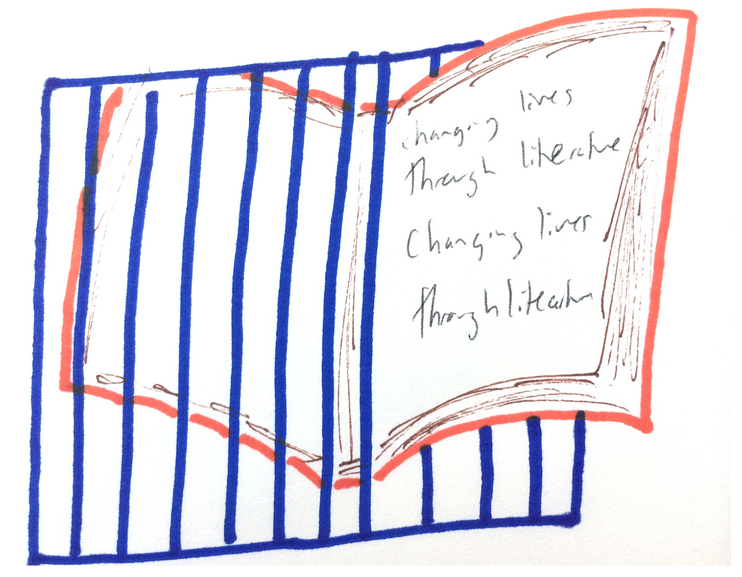 changing lives
through literature
changing lives
through literature